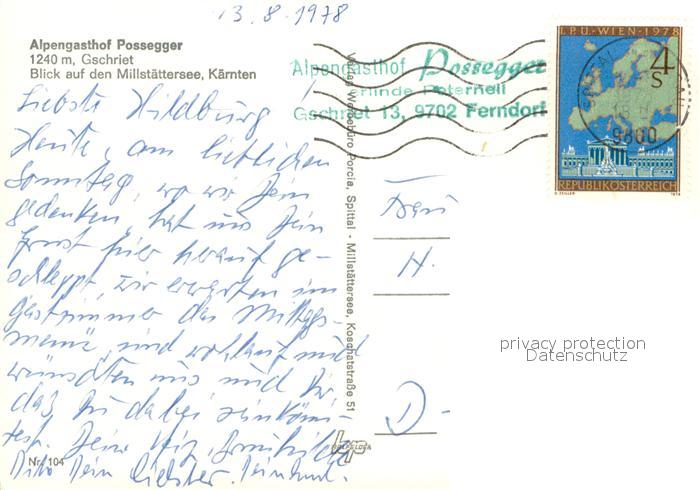 13.8.1978
Alpengasthof Possegger
1240 m, Gschriet
Blick auf den Millstättersee, Kärnten
Liebste Hildburg
Heute, am lieblichen
Sonntag, wo wir Dein
gedenken, hat uns Dein
Ernst hier herauf ge-
schleppt, wir erwarten im
Gastzimmer das Mittags-
menü, sind wohlauf und
wünschten uns und Dir
das Du dabei sein könn-
test. Deine
Dein Liebster
Nr. 104
Verlag Werbebüro Porcia, Spittal - Millstättersee, Koschatstraße 51
Alpengasthof Possegger
Gschriet 13, 9702 Ferndorf
I.P.U.-WIEN-1978
4
S
9800
REPUBLIK ÖSTERREICH
1978
Frau
H.
D-
privacy protection
Datenschutz